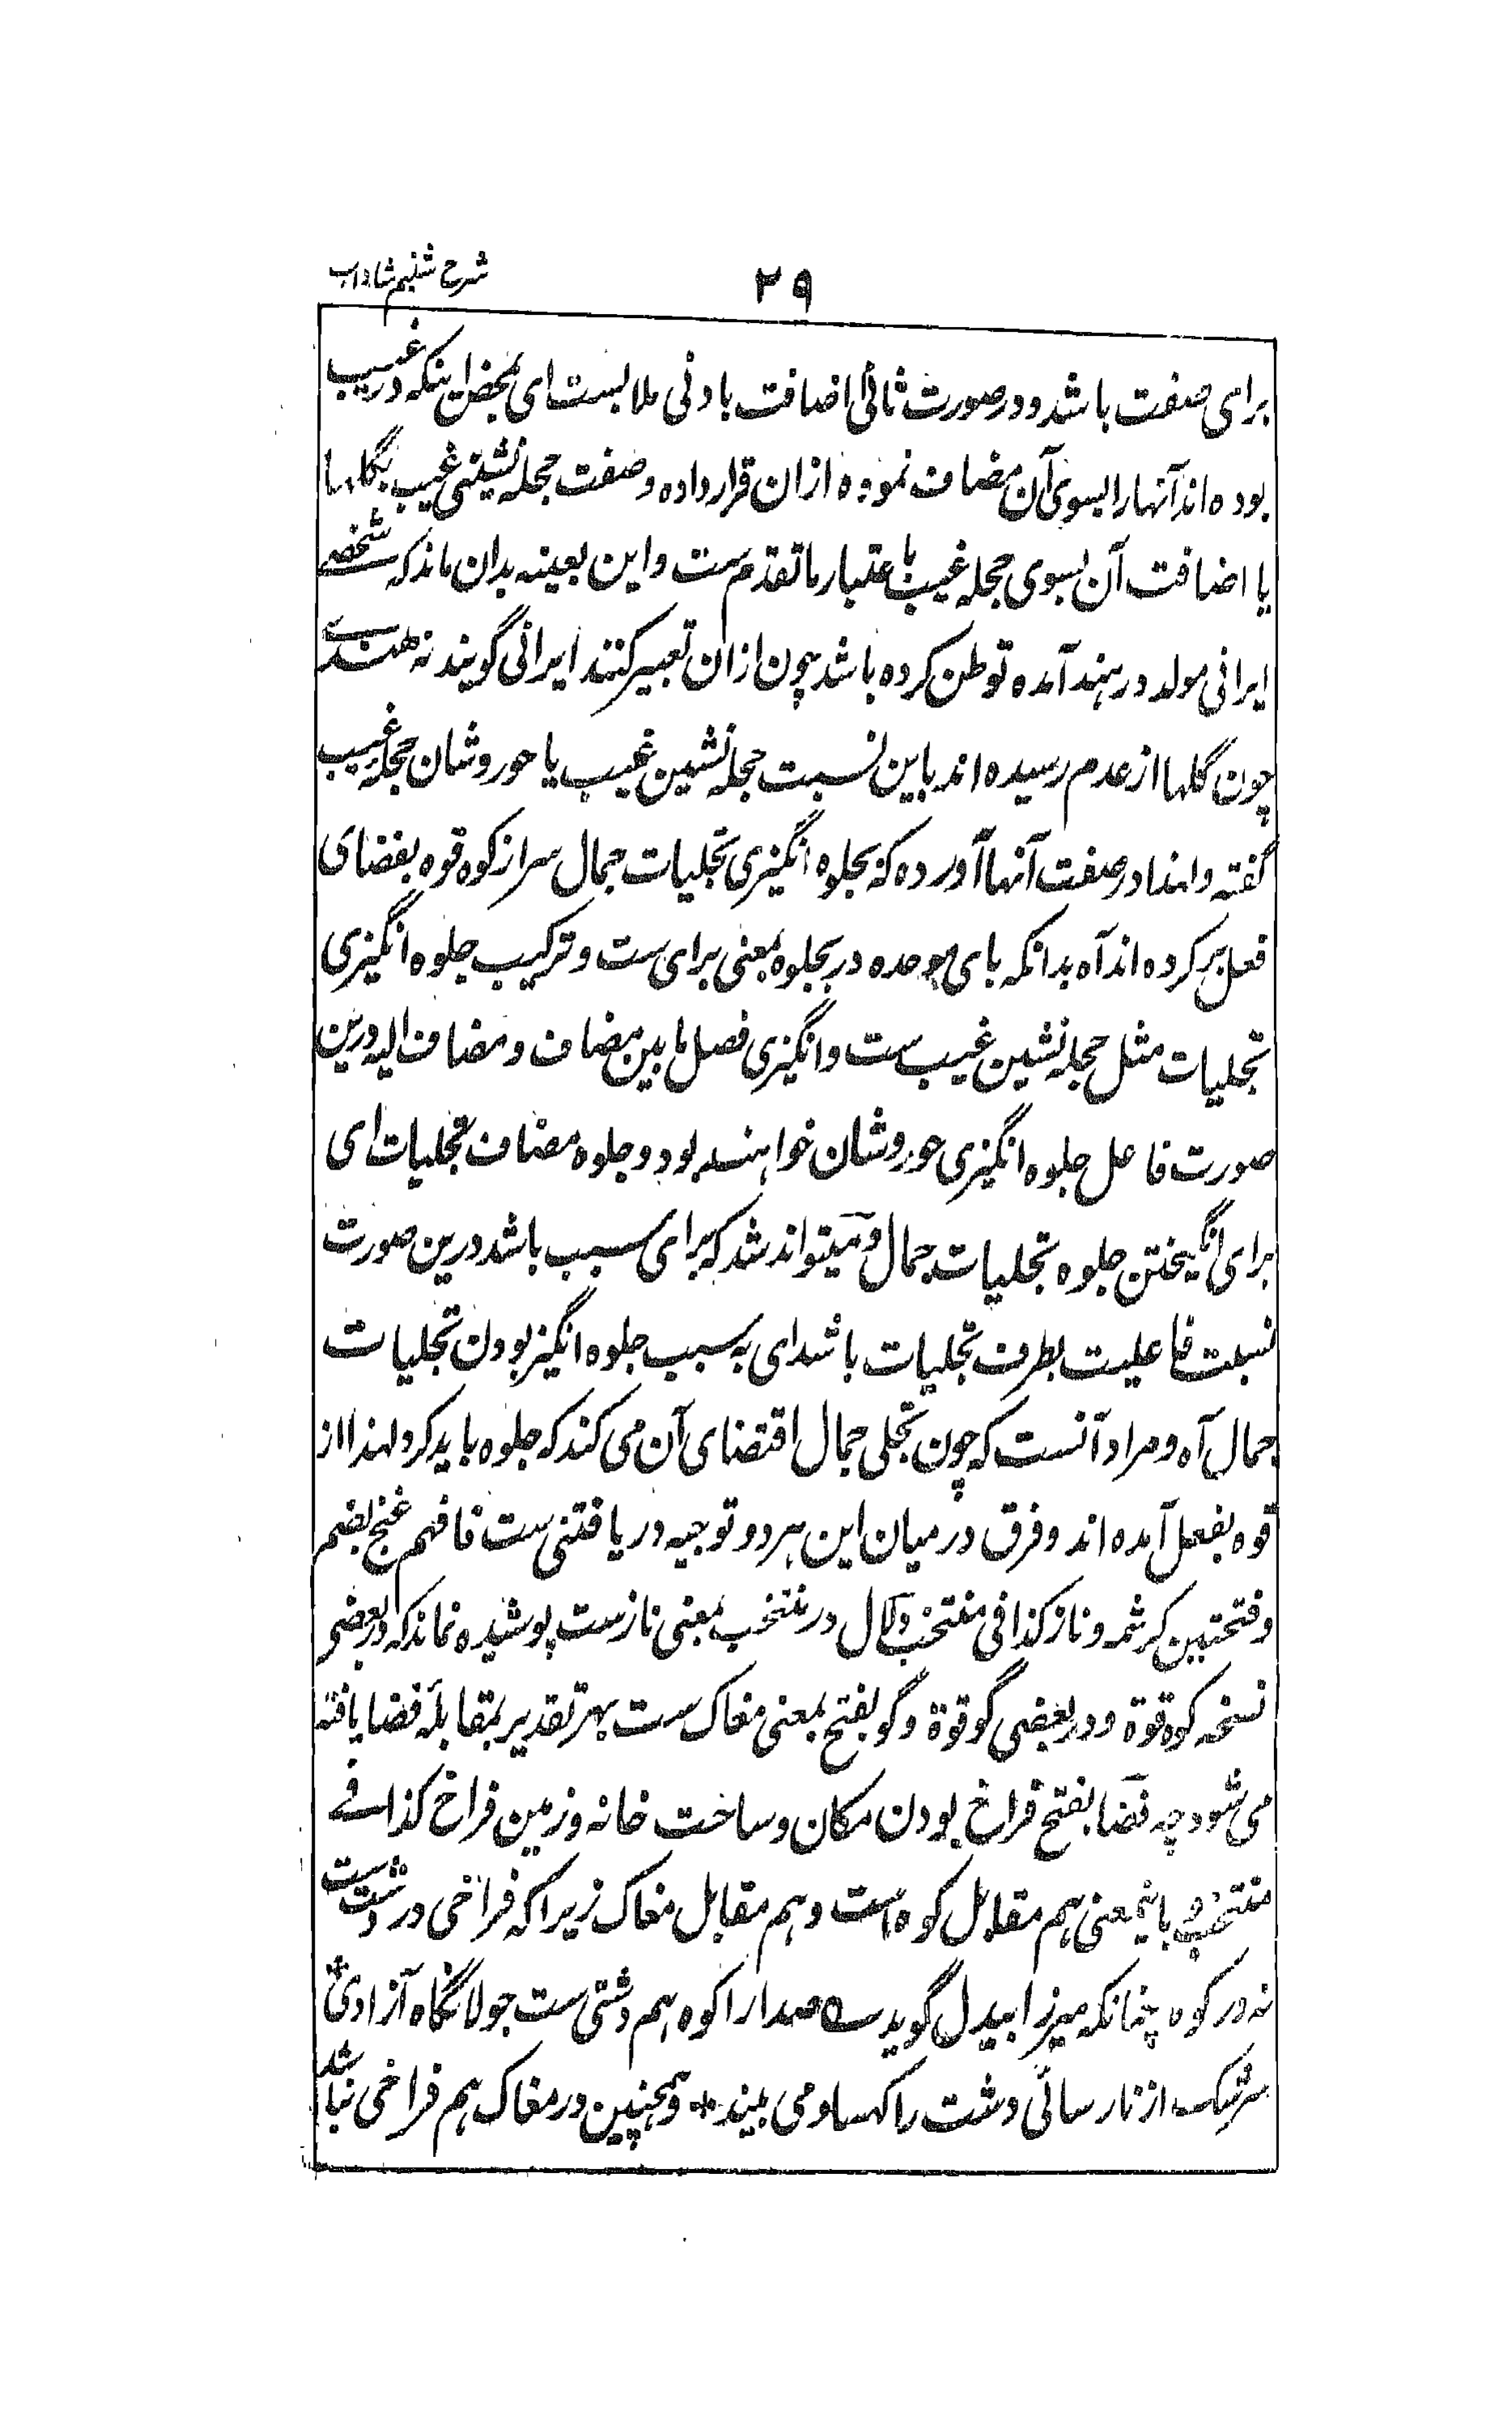 شرح شبنم شاداب
۲۹
برای صفت باشد و در صورت ثانی اضافت بادنی ملابست ای بمحض اینکه در غیب
بوده اند آنها را بسوی آن مضاف نموده ازان قرار داده وصفت حجله نشینی غیب بگلها
یا اضافت آن بسوی حجله غیب باعتبار ما تقدم ست و این بعینه بدان ماند که شخصے
ایرانی مولد در هند آمده توطن کرده باشد چون ازان تعبیر کنند ایرانی گویند نه هندے
چون گلها از عدم رسیده اند باین نسبت حجله نشین غیب یا حوروشان حجله غیب
گفته و لهذا در صفت آنها آورده که بجلوه انگیزی تجلیات جمال سر از کوه قوه بفضای
فعل بر کرده اند آه بدانکه بای موحده در بجلوه بمعنی برای ست و ترکیب جلوه انگیزی
تجلیات مثل حجله نشین غیب ست و انگیزی فصل ما بین مضاف و مضاف الیه درین
صورت فاعل جلوه انگیزی حوروشان خواهند بود و جلوه مضاف تجلیات ای
برای انگیختن جلوه تجلیات جمال و میتواند شد که برای سبب باشد درین صورت
نسبت فاعلیت بطرف تجلیات باشد ای به سبب جلوه انگیز بودن تجلیات
جمال آه و مراد آنست که چون تجلی جمال اقتضای آن می کند که جلوه باید کرد لهذا از
قوه بفعل آمده اند و فرق درمیان این هر دو توجیه دریافتنی ست فافهم غنج بضم
و فتحتین کرشمه و ناز کذا فی منتخب و دلال در منتخب بمعنی نازست پوشیده نماند که در بعضی
نسخه کوه قوة و در بعضی گو قوة و گو بفتح بمعنی مغاک ست بهر تقدیر بمقابلهٔ فضا یافته
می شود چه فضا بفتح فراخ بودن مکان و ساحت خانه و زمین فراخ کذا فے
منتخب و باینمعنی هم مقابل کوه است و هم مقابل مغاک زیرا که فراخی در دشت ست
نه در کوه چنانکه میرزا بیدل گوید ؎ صدا را کوه هم دشتی ست جولانگاه آزادی
سرشک از نارسائی دشت را کهسار می بیند * و همچنین در مغاک هم فراخی نباشد